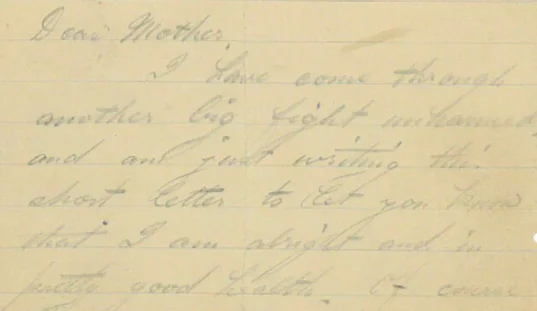 Dear Mother,
I have come through
another big fight unharmed,
and am just writing this
short letter to let you know
that I am alright and in
pretty good health. Of course